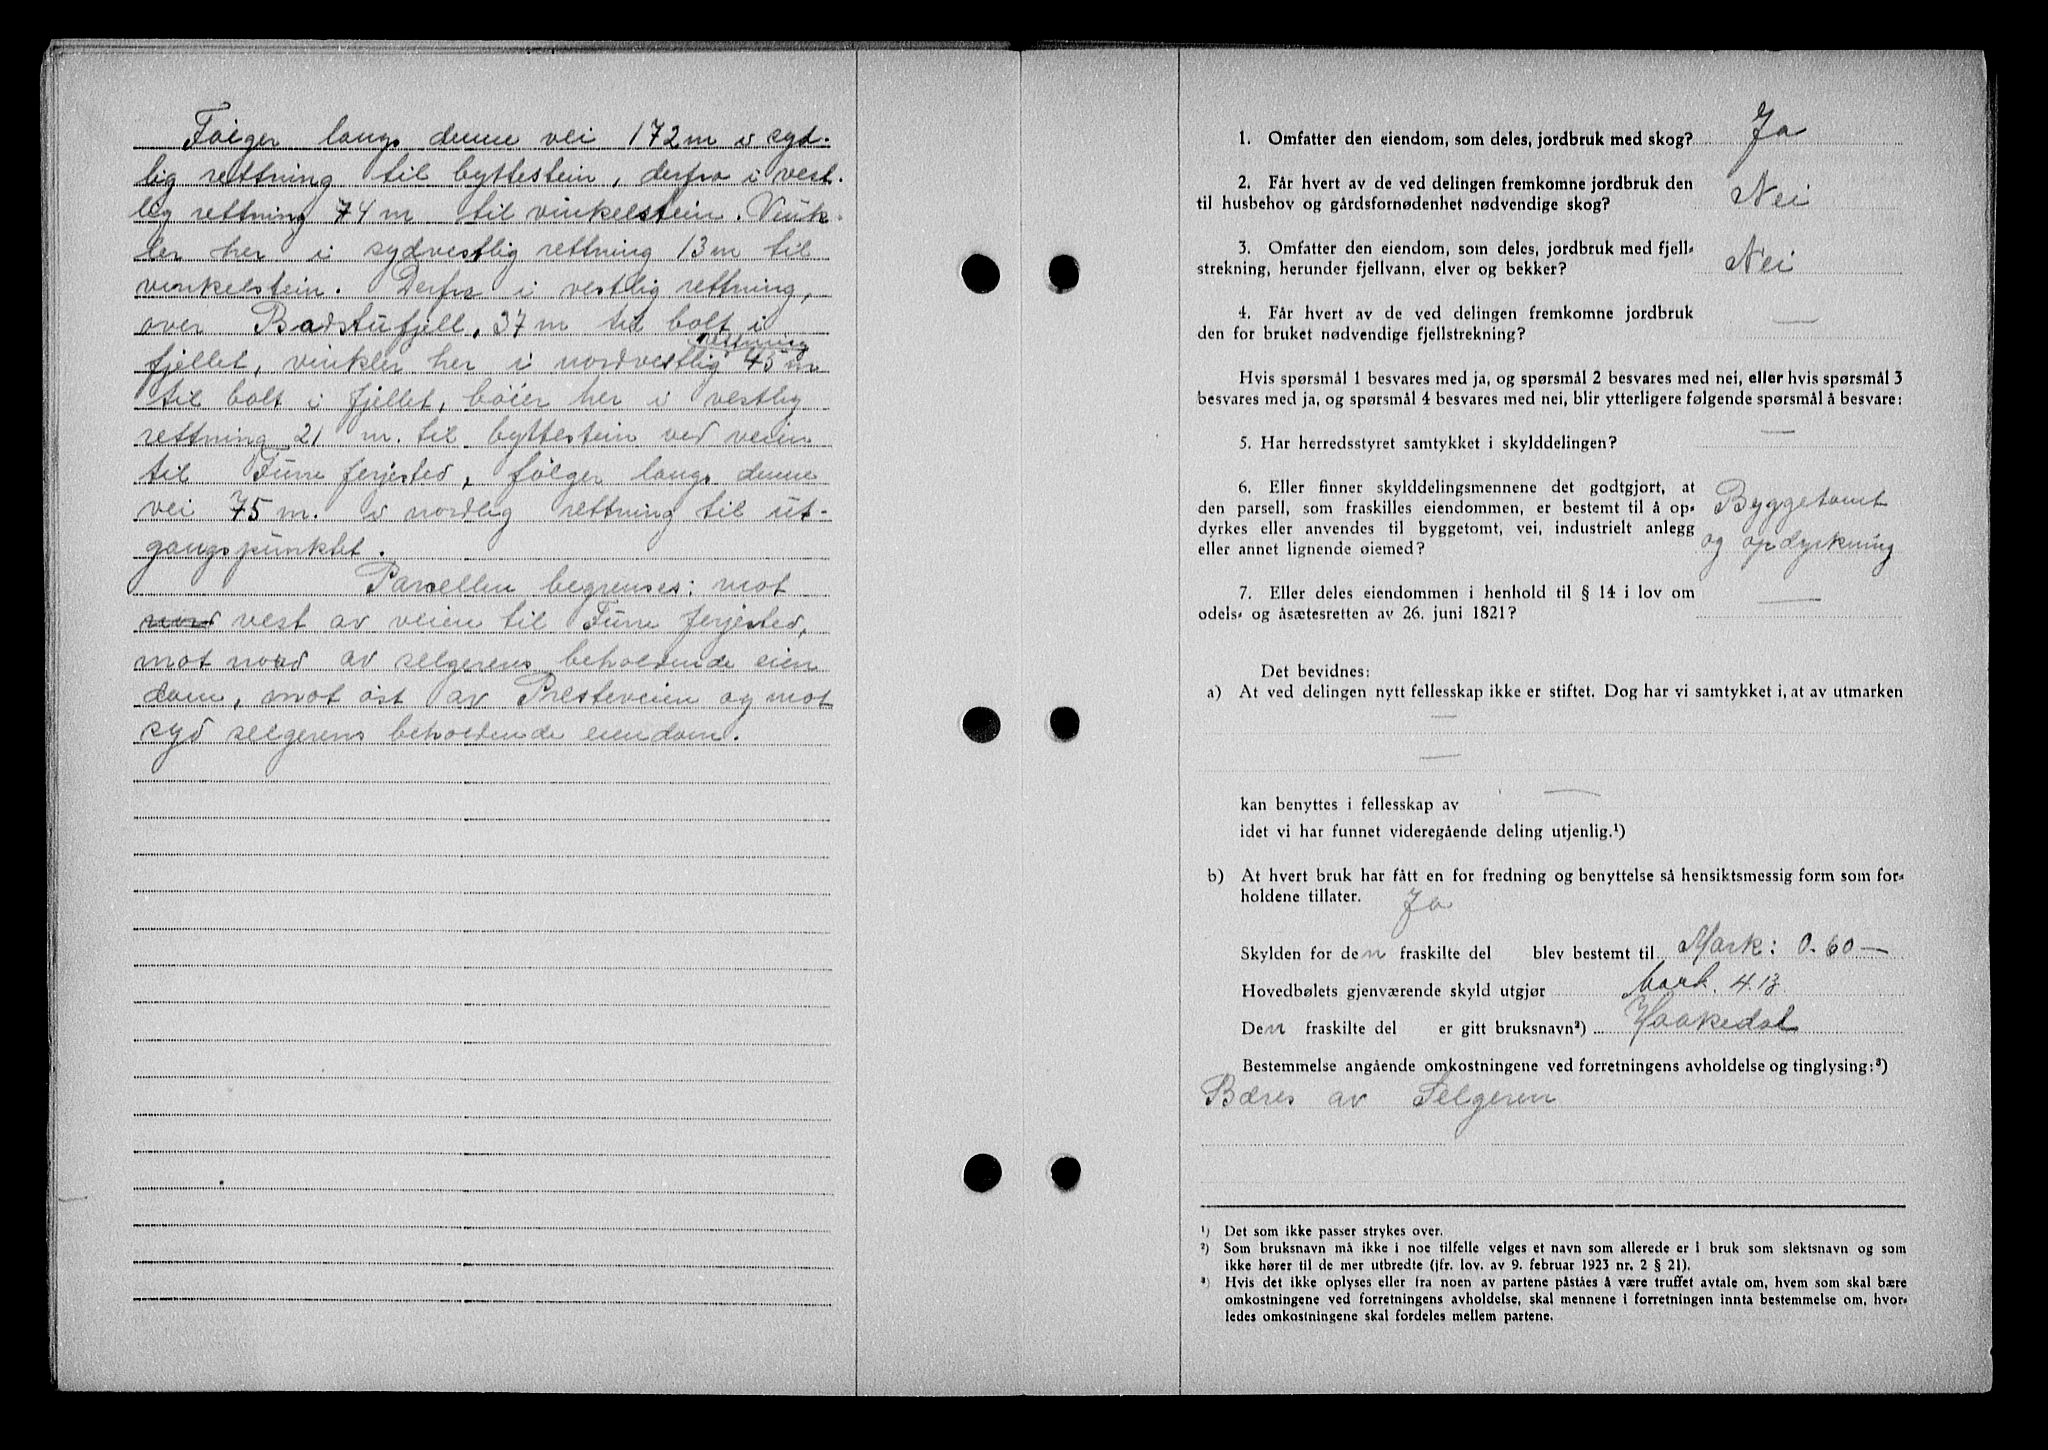 Følger langs denne vei 172 m i syd-
lig rettning til byttestein, derfra i vest-
lig rettning 74 m til vinkelstein. Vink-
ler her i sydvestlig rettning 13 m til
vinkelstein. Derfra i vestlig rettning,
over Badstufjell, 37 m til bolt i
fjellet, vinkler her i nordvestlig rettning 45 m
til bolt i fjellet, bøier her i vestlig
rettning 21 m. til byttestein ved veien
til Furre ferjested, følger langs denne
vei 75 m. i nordlig rettning til ut-
gangspunktet.
Parsellen begrenses: mot
nord vest av veien til Furre ferjested,
mot nord av selgerens beholdende eien
dom, mot øst av Presteveien og mot
syd selgerens beholdende eiendom.
1. Omfatter den eiendom, som deles, jordbruk med skog? Ja
2. Får hvert av de ved delingen fremkomne jordbruk den
til husbehov og gårdsfornødenhet nødvendige skog? Nei
3. Omfatter den eiendom, som deles, jordbruk med fjell-
strekning, herunder fjellvann, elver og bekker? Nei
4. Får hvert av de ved delingen fremkomne jordbruk
den for bruket nødvendige fjellstrekning? —
Hvis spørsmål 1 besvares med ja, og spørsmål 2 besvares med nei, eller hvis spørsmål 3
besvares med ja, og spørsmål 4 besvares med nei, blir ytterligere følgende spørsmål å besvare:
5. Har herredsstyret samtykket i skylddelingen? —
6. Eller finner skylddelingsmennene det godtgjort, at
den parsell, som fraskilles eiendommen, er bestemt til å op-
dyrkes eller anvendes til byggetomt, vei, industrielt anlegg
eller annet lignende øiemed? Byggetomt
og opdyrkning
7. Eller deles eiendommen i henhold til § 14 i lov om
odels- og åsætesretten av 26. juni 1821? —
Det bevidnes:
a) At ved delingen nytt fellesskap ikke er stiftet. Dog har vi samtykket i, at av utmarken
—
—
kan benyttes i fellesskap av —
idet vi har funnet videregående deling utjenlig.¹)
b) At hvert bruk har fått en for fredning og benyttelse så hensiktsmessig form som for-
holdene tillater. Ja
Skylden for den fraskilte del blev bestemt til Mark: 0.60—
Hovedbølets gjenværende skyld utgjør Mark. 4.13
Den fraskilte del er gitt bruksnavn²) Haakedal
Bestemmelse angående omkostningene ved forretningens avholdelse og tinglysing:³)
Bæres av Selgeren
¹) Det som ikke passer strykes over.
²) Som bruksnavn må ikke i noe tilfelle velges et navn som allerede er i bruk som slektsnavn og som
ikke hører til de mer utbredte (jfr. lov. av 9. februar 1923 nr. 2 § 21).
³) Hvis det ikke oplyses eller fra noen av partene påstås å være truffet avtale om, hvem som skal bære
omkostningene ved forretningens avholdelse, skal mennene i forretningen innta bestemmelse om, hvor-
ledes omkostningene skal fordeles mellem partene.